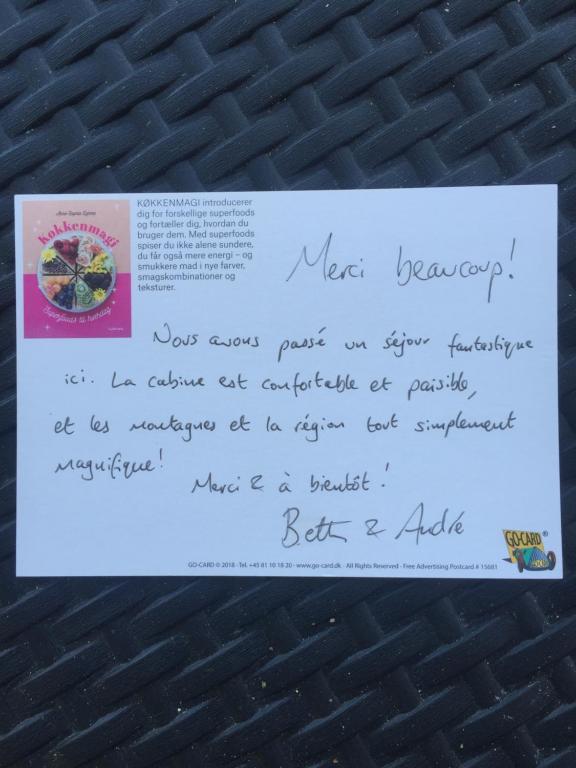 KØKKENMAGI introducerer
dig for forskellige superfoods
og fortæller dig, hvordan du
bruger dem. Med superfoods
spiser du ikke alene sundere,
du får også mere energi – og
smukkere mad i nye farver,
smagskombinationer og
teksturer.
Køkkenmagi
Superfoods til hverdag
Merci beaucoup!
Nous avons passé un séjour fantastique
ici. La cabine est confortable et paisible,
et les montagnes et la région tout simplement
magnifique!
Merci & à bientôt!
& André
GO-CARD ®
GO-CARD © 2018 · Tel. +45 81 10 18 20 · www.go-card.dk · All Rights Reserved · Free Advertising Postcard # 15681